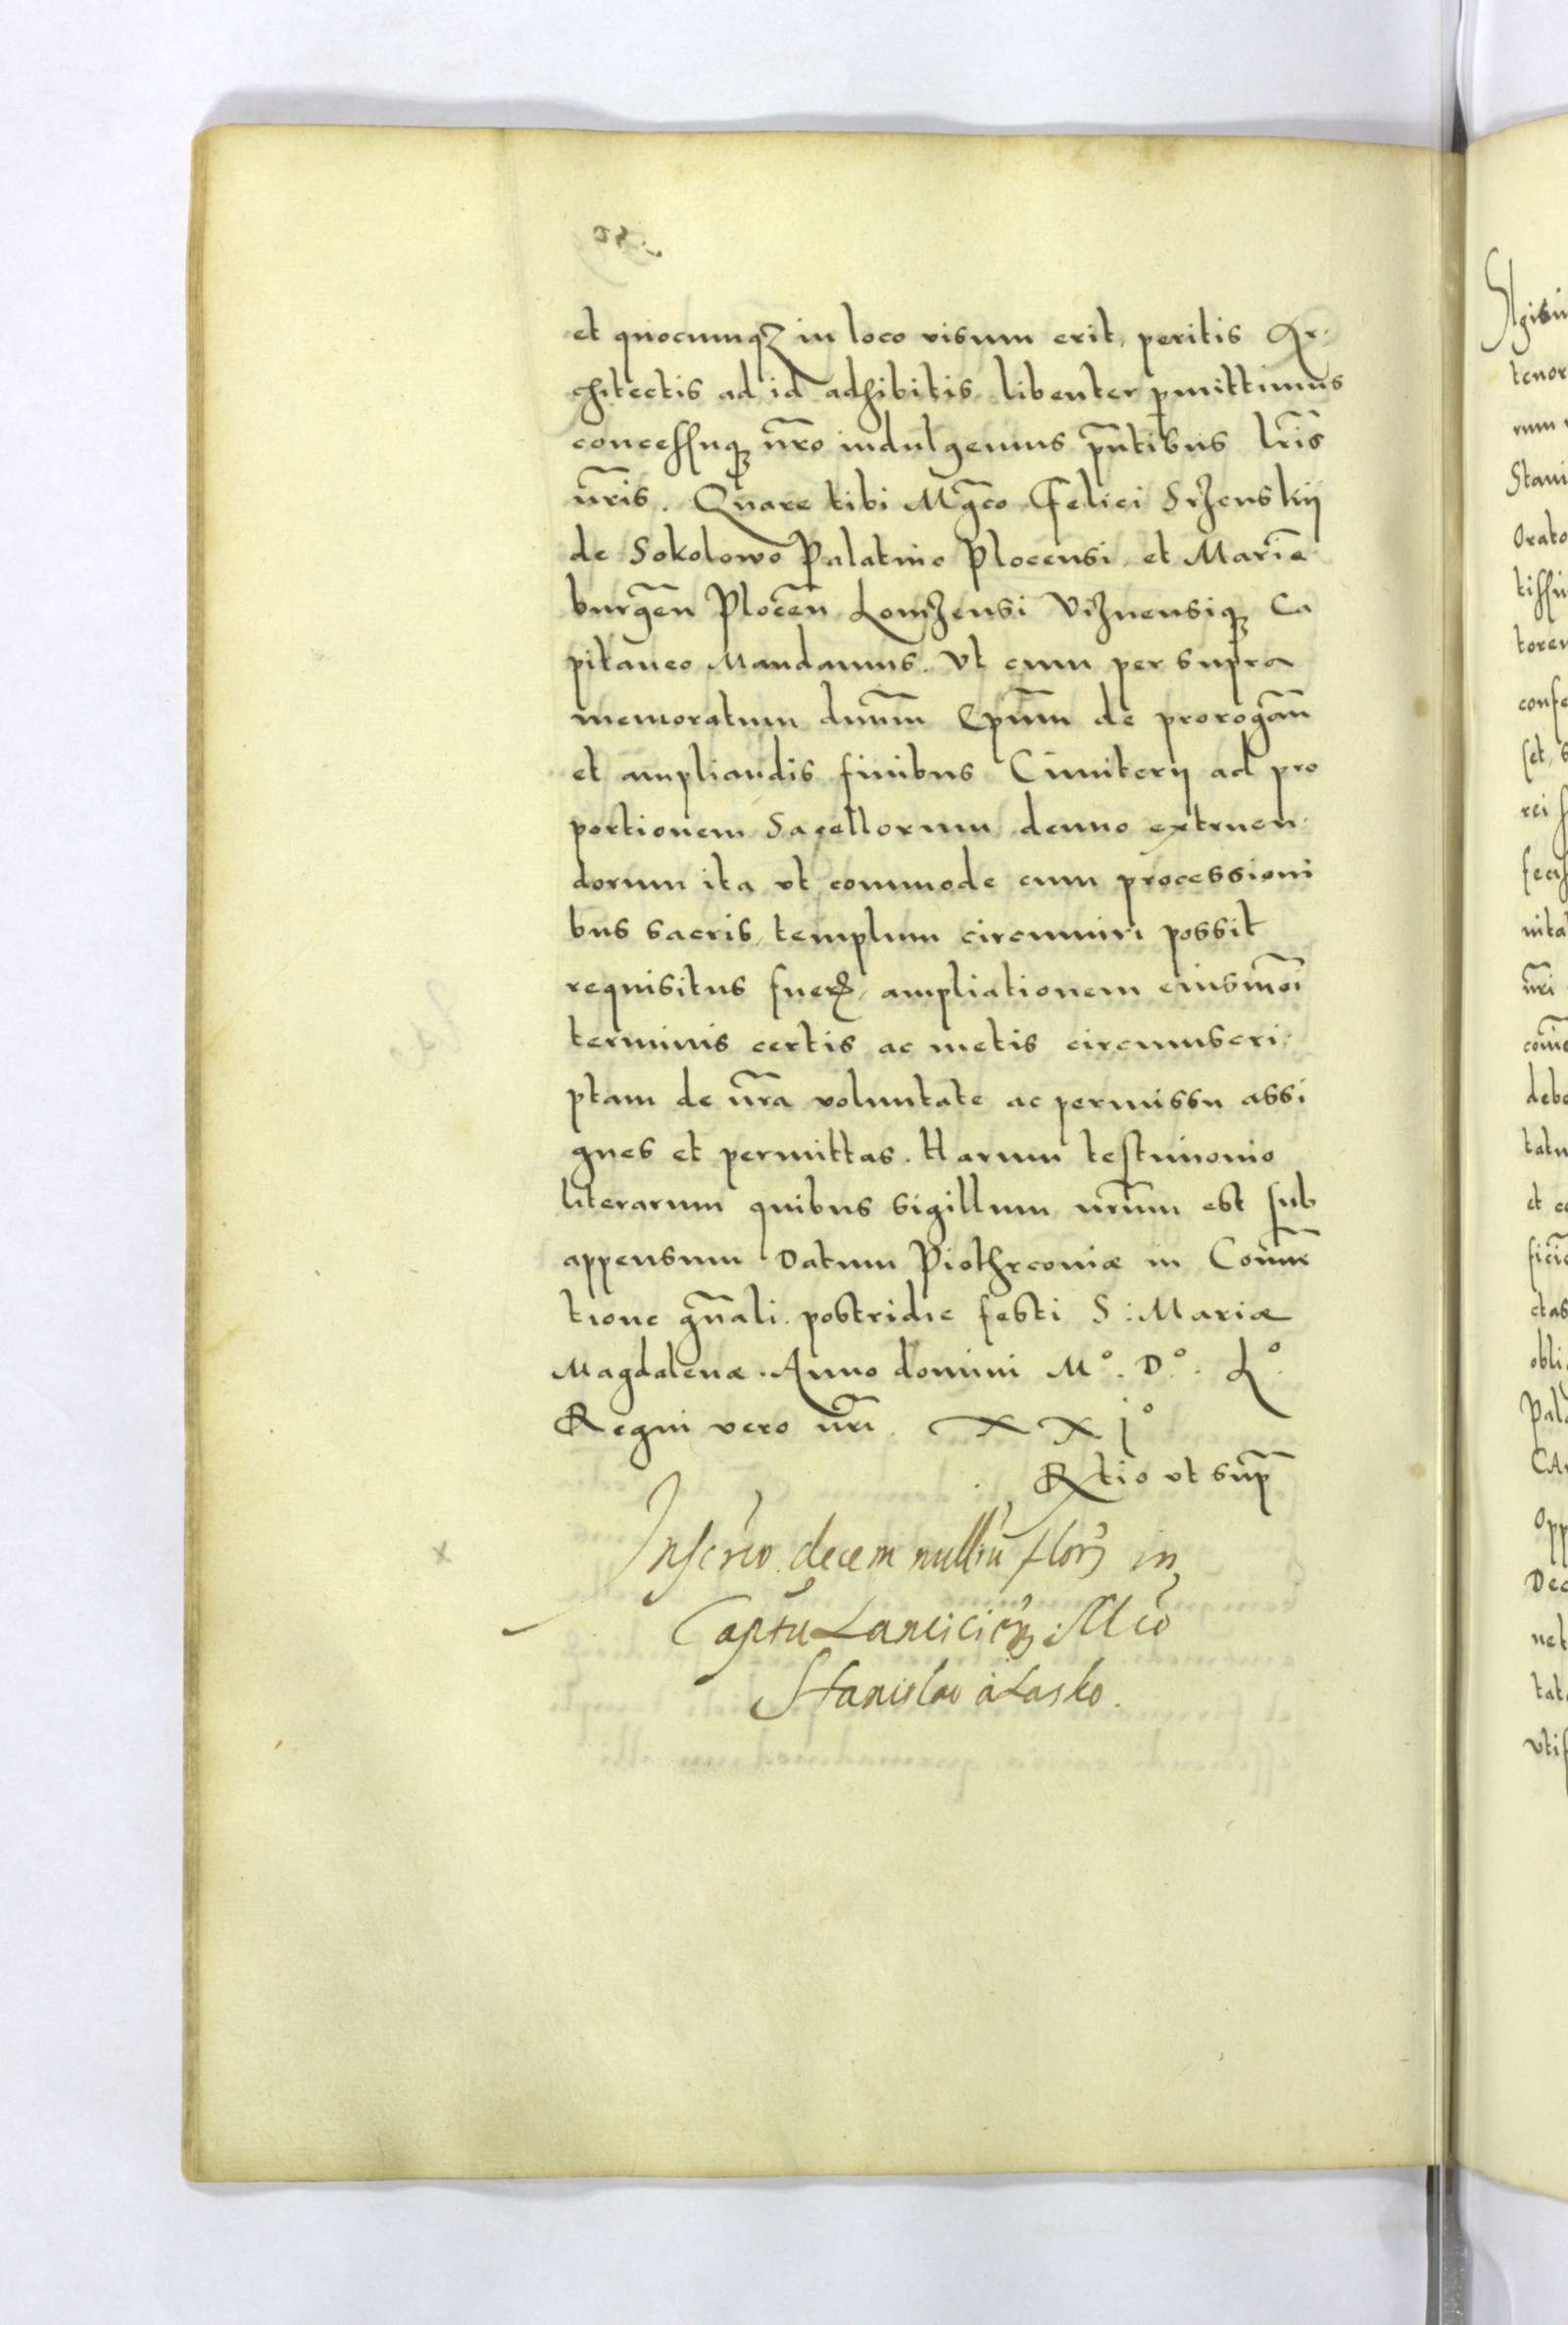 et quocumqz in loco visum erit, peritis Ar
chitectis ad id adhibitis libenter pmittimus
concessuq nr̃o indulgemus pñtibus lr̃is
nr̃is. Quare tibi Mg̃co Felici Srzenskij
de Sokolowo Palatino Plocensi et Mariẽ
burgeñ Ploceñ Lomzensi Viznensiq Ca
pitaneo Mandamus. Vt cum per supra
memoratum dnũm Epũm de prorogañ
et ampliandis finibus Cimiterij ad pro
portionem Sacellorum denuo extruen
dorum ita vt commode cum processioni
bus sacris templum circumiri possit
requisitus fuer, ampliationem eiusmõi
terminis certis ac metis circumscri
ptam de nr̃a voluntate ac permissu assi
gnes et permittas. Harum testimonio
literarum quibus sigillum nr̃um est sub
appensum Datum Piothrconiæ in Conuẽ
tione gñali postridie festi S: Mariæ
Magdalenæ. Anno domini M°. D°. L°.
Regni vero nr̃i. XXj°
Rtio vt sup̃
Inscrĩo decem milliũ flor in
Captu Lancicien Mco
Stanislao à Lasko.
Sigis
tenor
rum
Stani
Orato
tissi
toren
confe
set, s
rei
feci
nita
nr̃i
com̃
debe
tatu
et c
ficiẽ
ctas
obli
Pala
CAs
Opp
Dec
net
tat
vtis